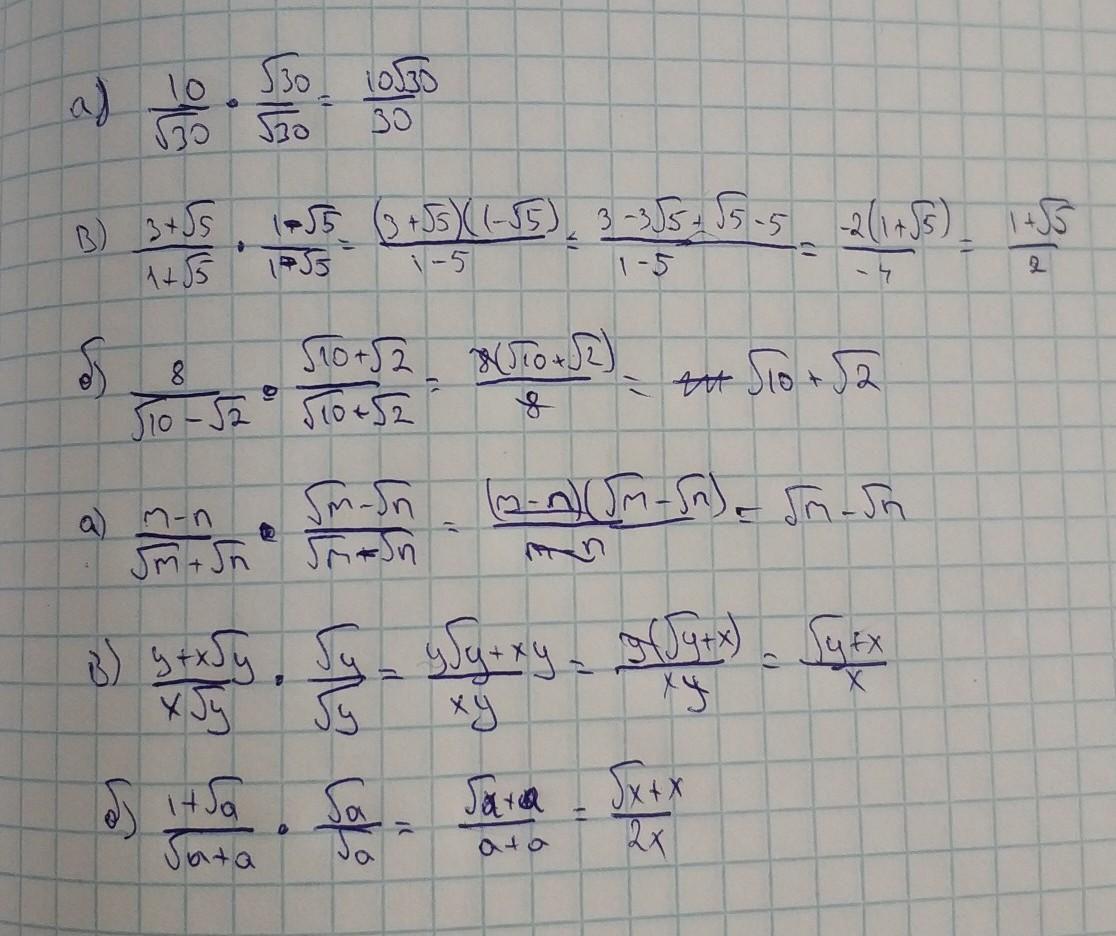 а) 10/√30 · √30/√30 = 10√30/30
в) 3+√5/1+√5 · 1-√5/1-√5 = (3+√5)(1-√5)/1-5 = 3-3√5+√5-5/1-5 = -2(1+√5)/-4 = 1+√5/2
б) 8/√10-√2 · √10+√2/√10+√2 = 8(√10+√2)/8 = √10+√2
а) m-n/√m+√n · √m-√n/√m-√n = (m-n)(√m-√n)/m-n = √m-√n
в) y+x√y/x√y · √y/√y = y√y+xy/xy = y(√y+x)/xy = √y+x/x
б) 1+√a/√a+a · √a/√a = √a+a/a+a = √x+x/2x